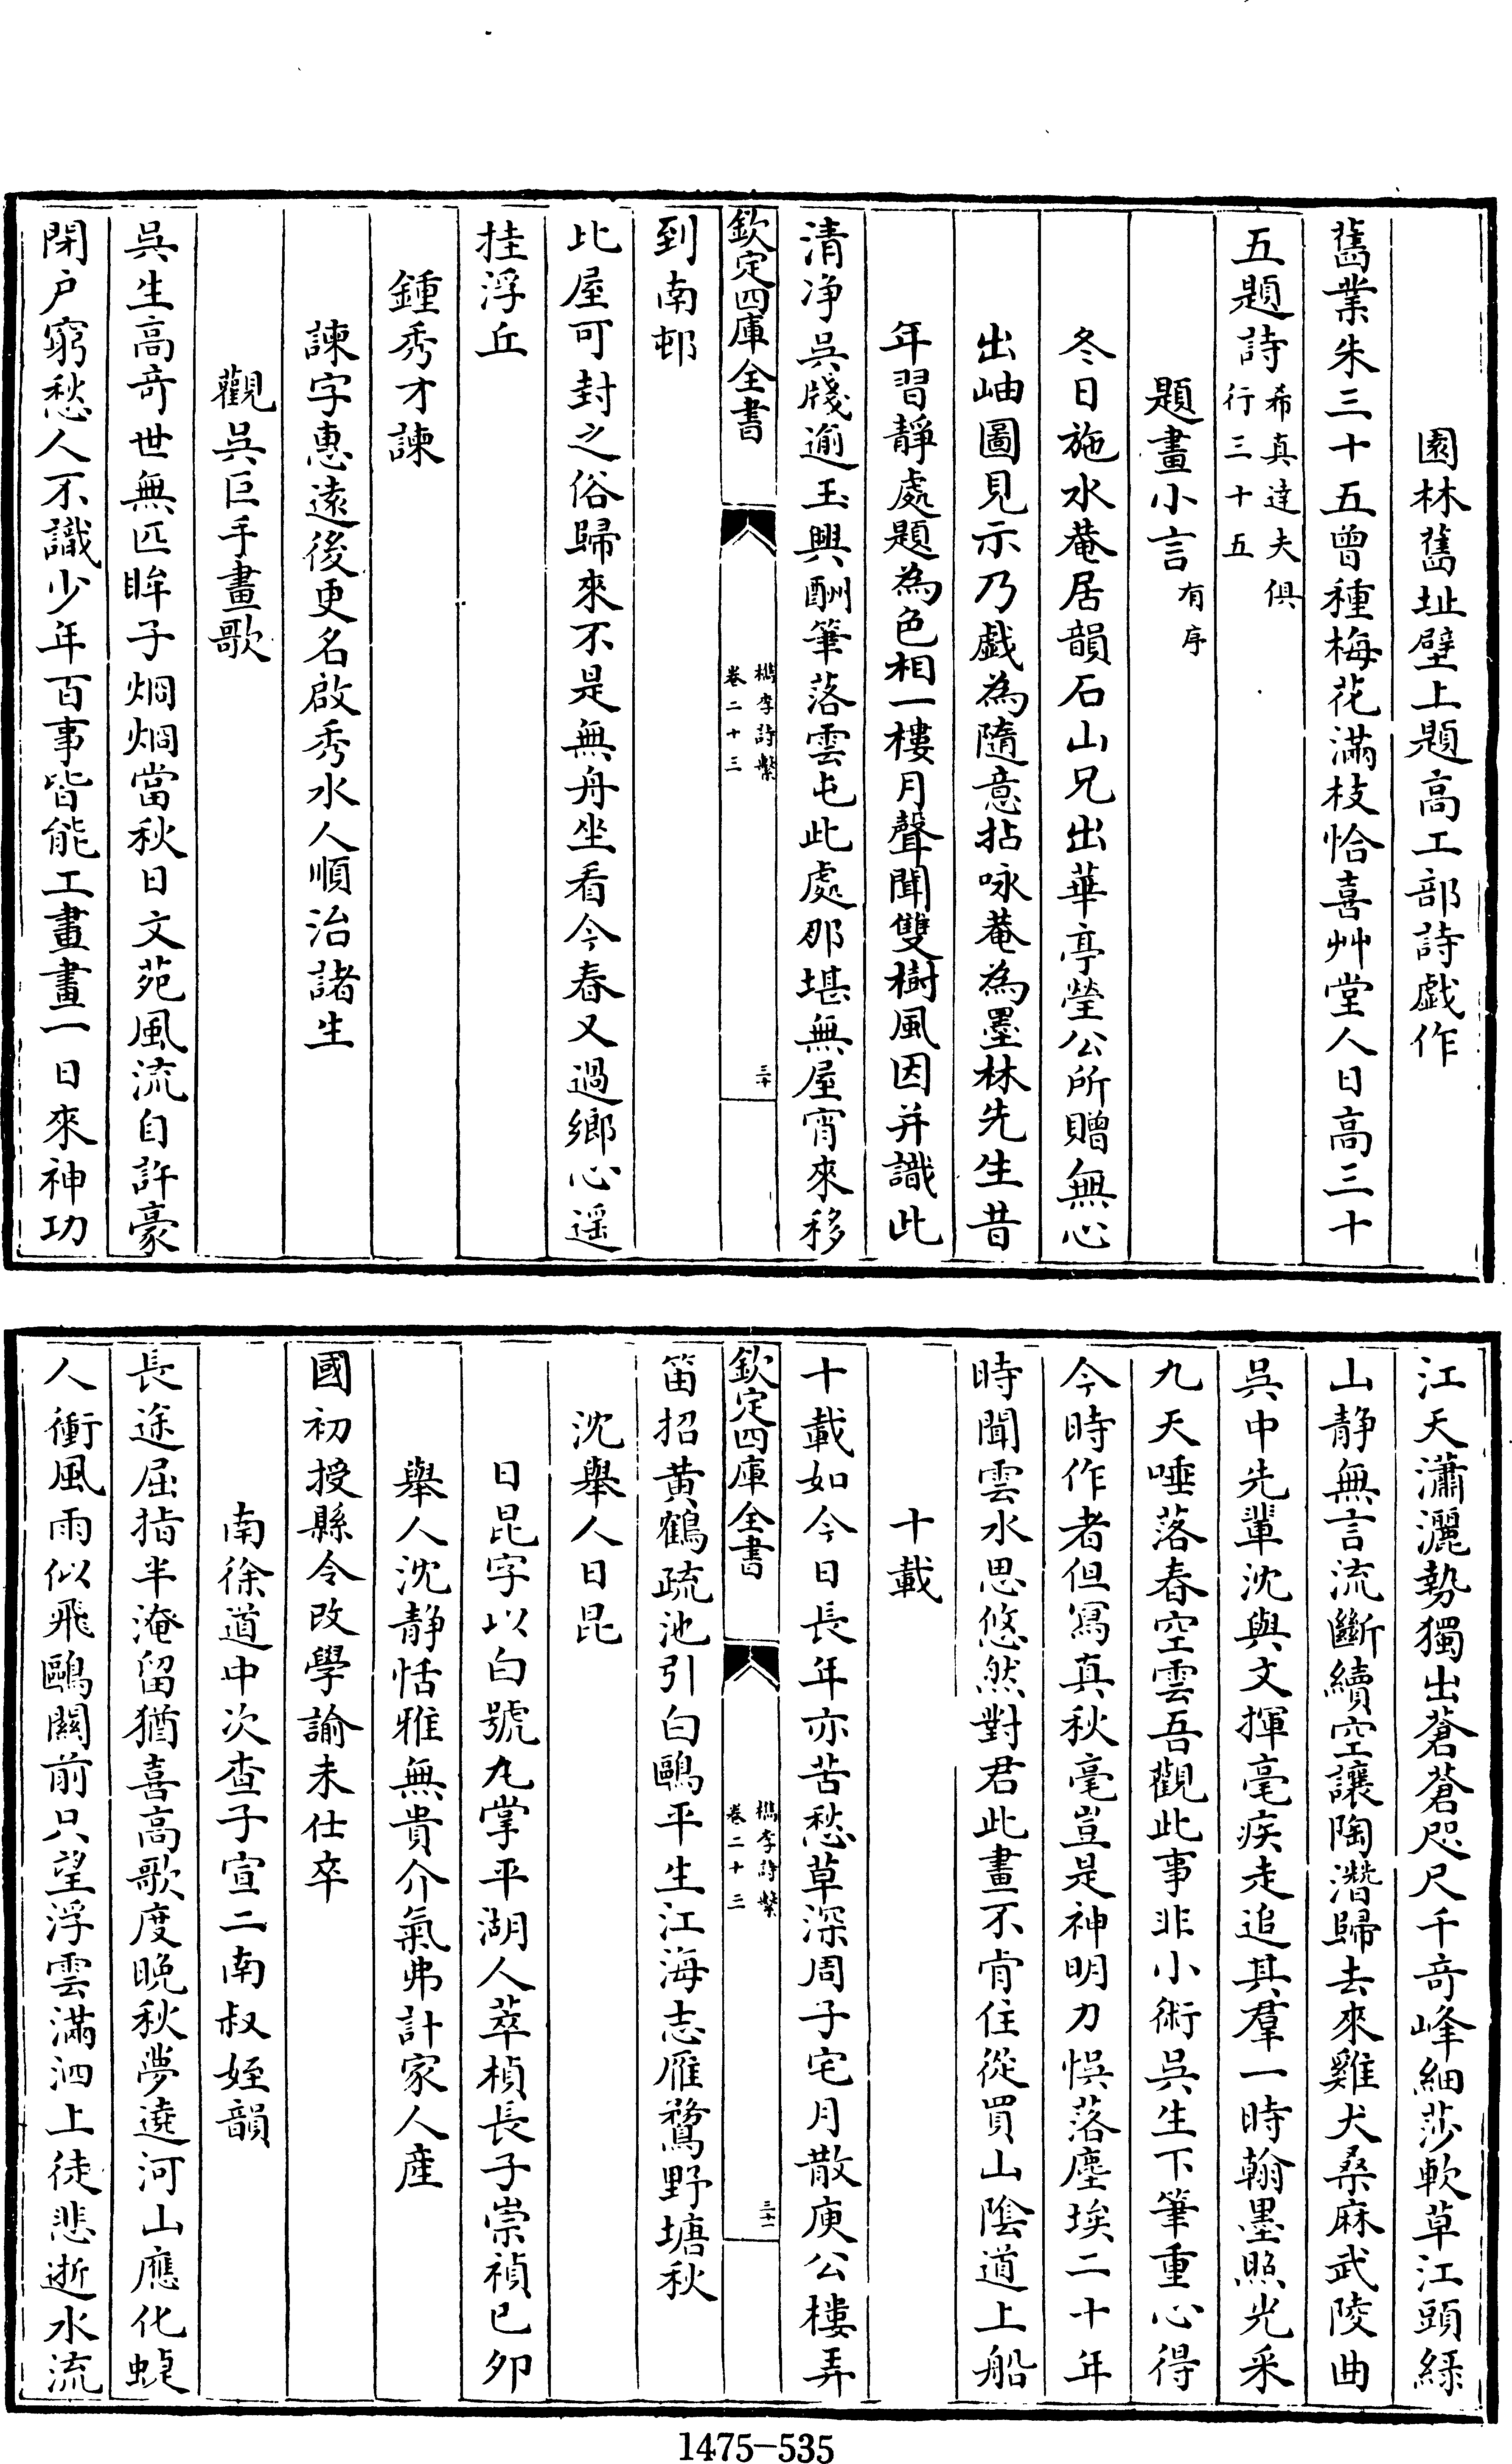 園林舊址壁上題高工部詩戲作
舊業朱三十五曾種梅花滿枝恰喜艸堂人日高三十
五題詩希真達夫俱行三十五
題畫小言有序
冬日施水菴居韻石山兄出華亭瑩公所贈無心
出岫圖見示乃戲為隨意拈咏菴為墨林先生昔
年習靜處題為色相一樓月聲聞雙樹風因并識此
清净吳牋逾玉興酬筆落雲屯此處那堪無屋宵來移
欽定四庫全書
檇李詩繫
卷二十三
三十
到南邨
比屋可封之俗歸來不是無舟坐看今春又過鄉心遥
挂浮丘
鍾秀才諫
諫字惠遠後更名啟秀水人順治諸生
觀吳巨手畫歌
吳生高竒世無匹眸子烱烱當秋日文苑風流自許豪
閉户窮愁人不識少年百事皆能工畫畫一日來神功
江天瀟灑勢獨出蒼蒼咫尺千竒峰細莎軟草江頭綠
山靜無言流斷續空讓陶潛歸去來雞犬桑麻武陵曲
吳中先輩沈與文揮毫疾走追其羣一時翰墨照光采
九天唾落春空雲吾觀此事非小術吳生下筆重心得
今時作者但寫真秋毫豈是神明力悞落塵埃二十年
時聞雲水思悠然對君此畫不肯住從買山陰道上船
十載
十載如今日長年亦苦愁草深周子宅月散庾公樓弄
欽定四庫全書
檇李詩繫
卷二十三
三十一
笛招黄鶴疏池引白鷗平生江海志雁鶩野塘秋
沈舉人日昆
日昆字以白號九掌平湖人萃楨長子崇禎已夘
舉人沈靜恬雅無貴介氣弗計家人産
國初授縣令改學諭未仕卒
南徐道中次查子宣二南叔姪韻
長途屈指半淹留猶喜高歌度晚秋夢遶河山應化蜨
人衝風雨似飛鷗闗前只望浮雲滿泗上徒悲逝水流
1475-535